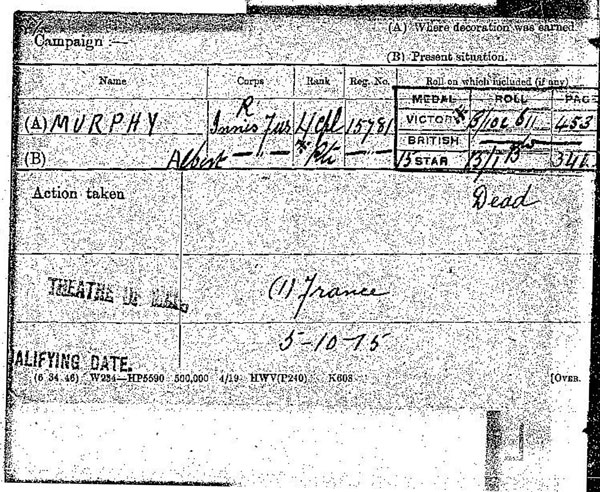 Campaign :—
(A) Where decoration was earned.
(B) Present situation.
Name Corps Rank Reg. No. Roll on which included (if any)
MEDAL ROLL PAGE
(A) MURPHY R Innis Fus L/Cpl 15781 VICTORY 453
BRITISH
(B) Albert — " — Pte 15 STAR
Action taken Dead
THEATRE OF WAR. (1) France
5-10-15
QUALIFYING DATE.
(6 34 46) W234—HP5590 500,000 4/19 HWV(P240) K608 [OVER.